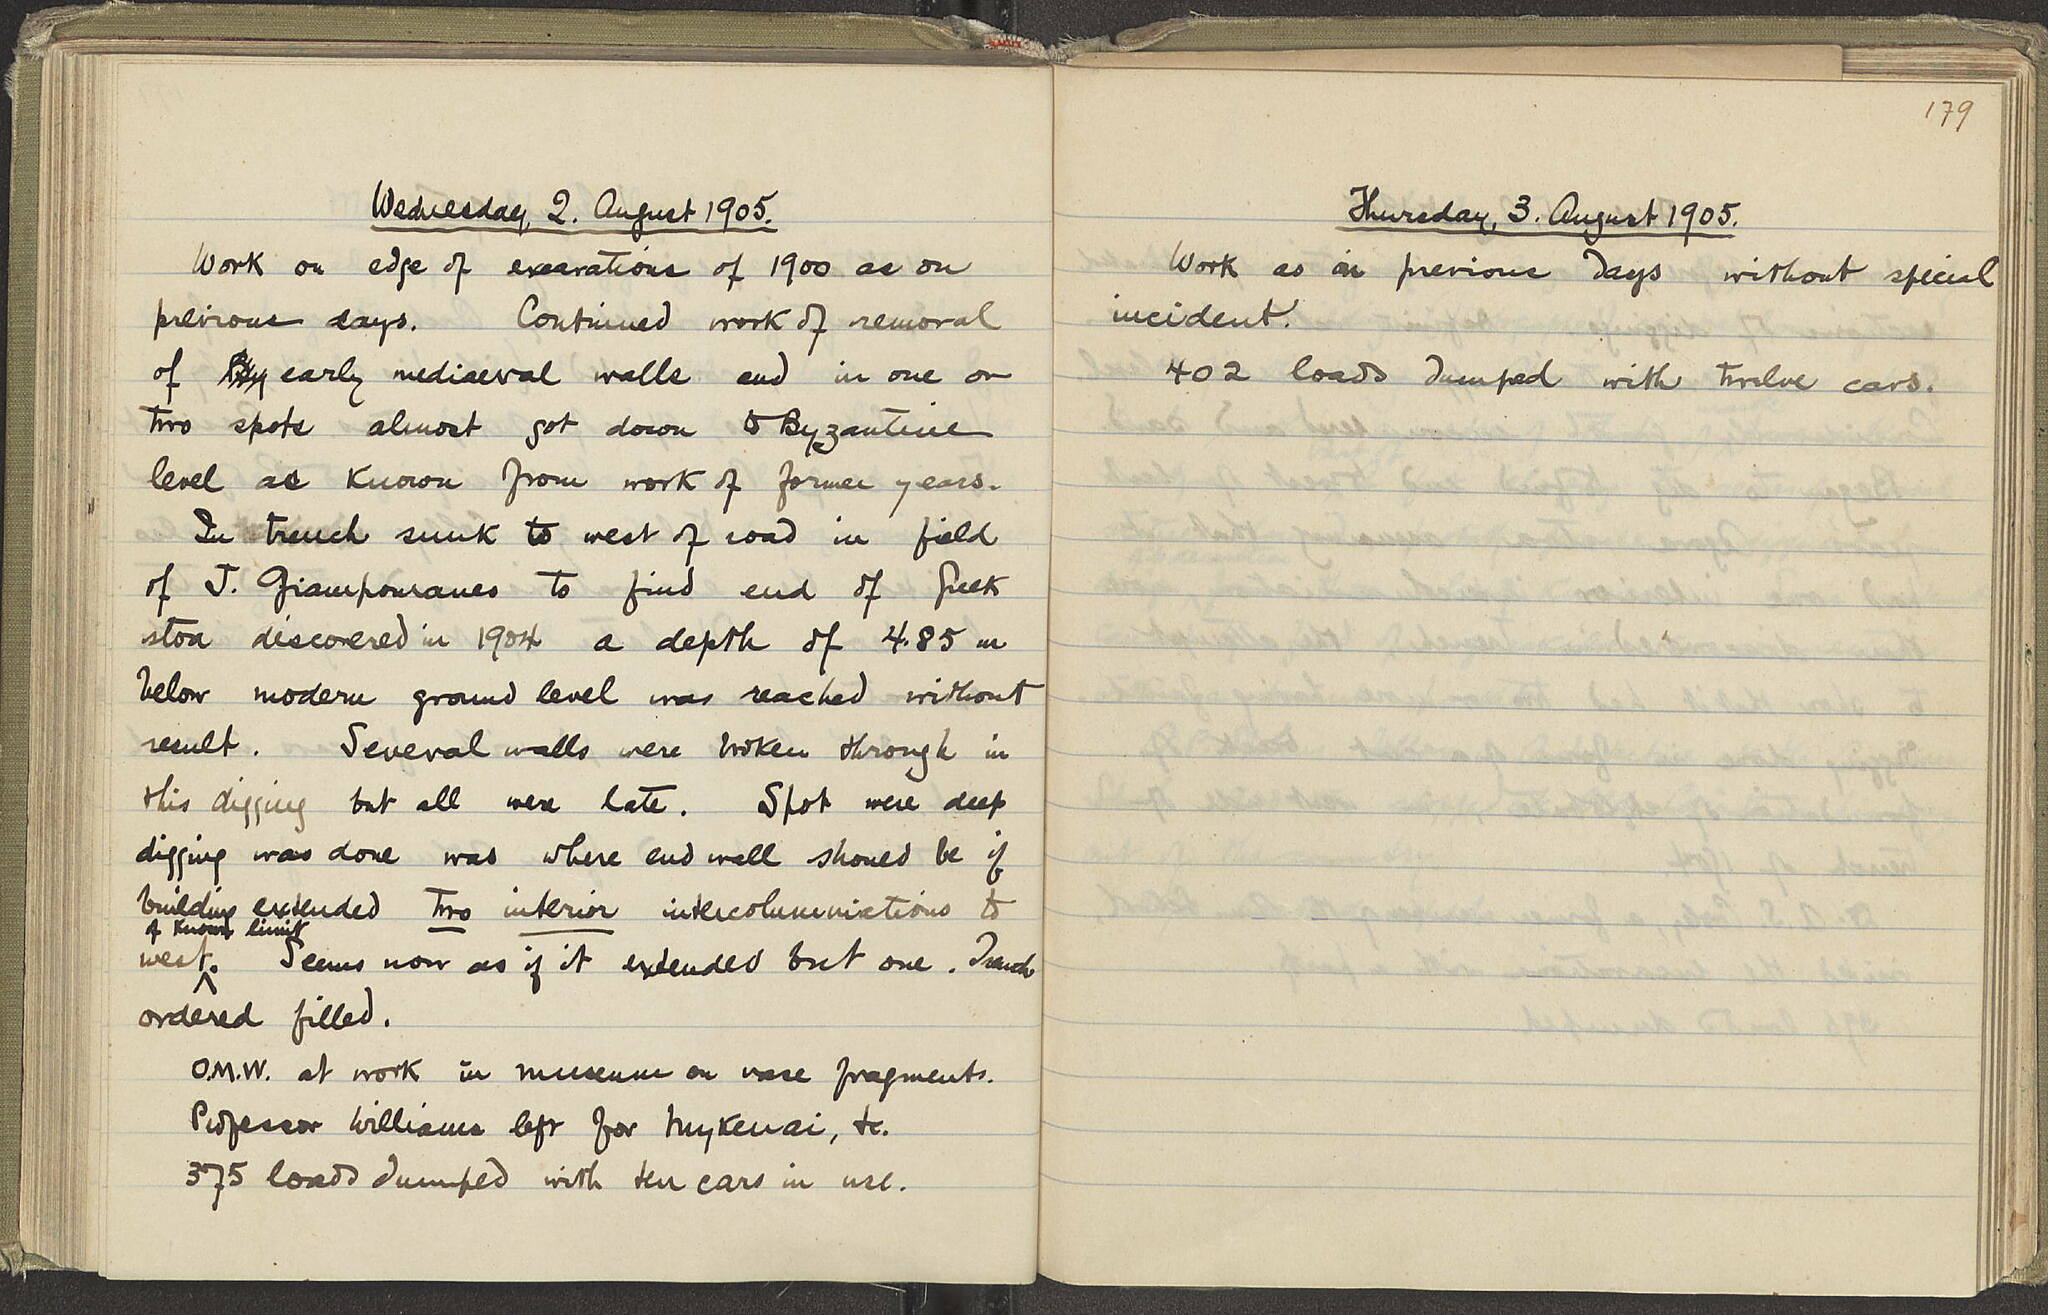 Wednesday, 2. August 1905.
Work on edge of excavations of 1900 as on
previous days. Continued work of removal
of early mediaeval walls and in one or
two spots almost got down to Byzantine
level as known from work of former years.
In trench sunk to west of road in field
of J. Giampouranes to find end of Greek
stoa discovered in 1904 a depth of 4.85 m
below modern ground level was reached without
result. Several walls were broken through in
this digging but all were late. Spot were deep
digging was done was where end wall should be if
building extended two interior intercolumniations to
of known limit
west. Seems now as if it extended but one. Trench
ordered filled.
O.M.W. at work in museum on vase fragments.
Professor Williams left for Mykenai, &c.
375 loads dumped with ten cars in use.
179
Thursday, 3. August 1905.
Work as on previous days without special
incident.
402 loads dumped with twelve cars.